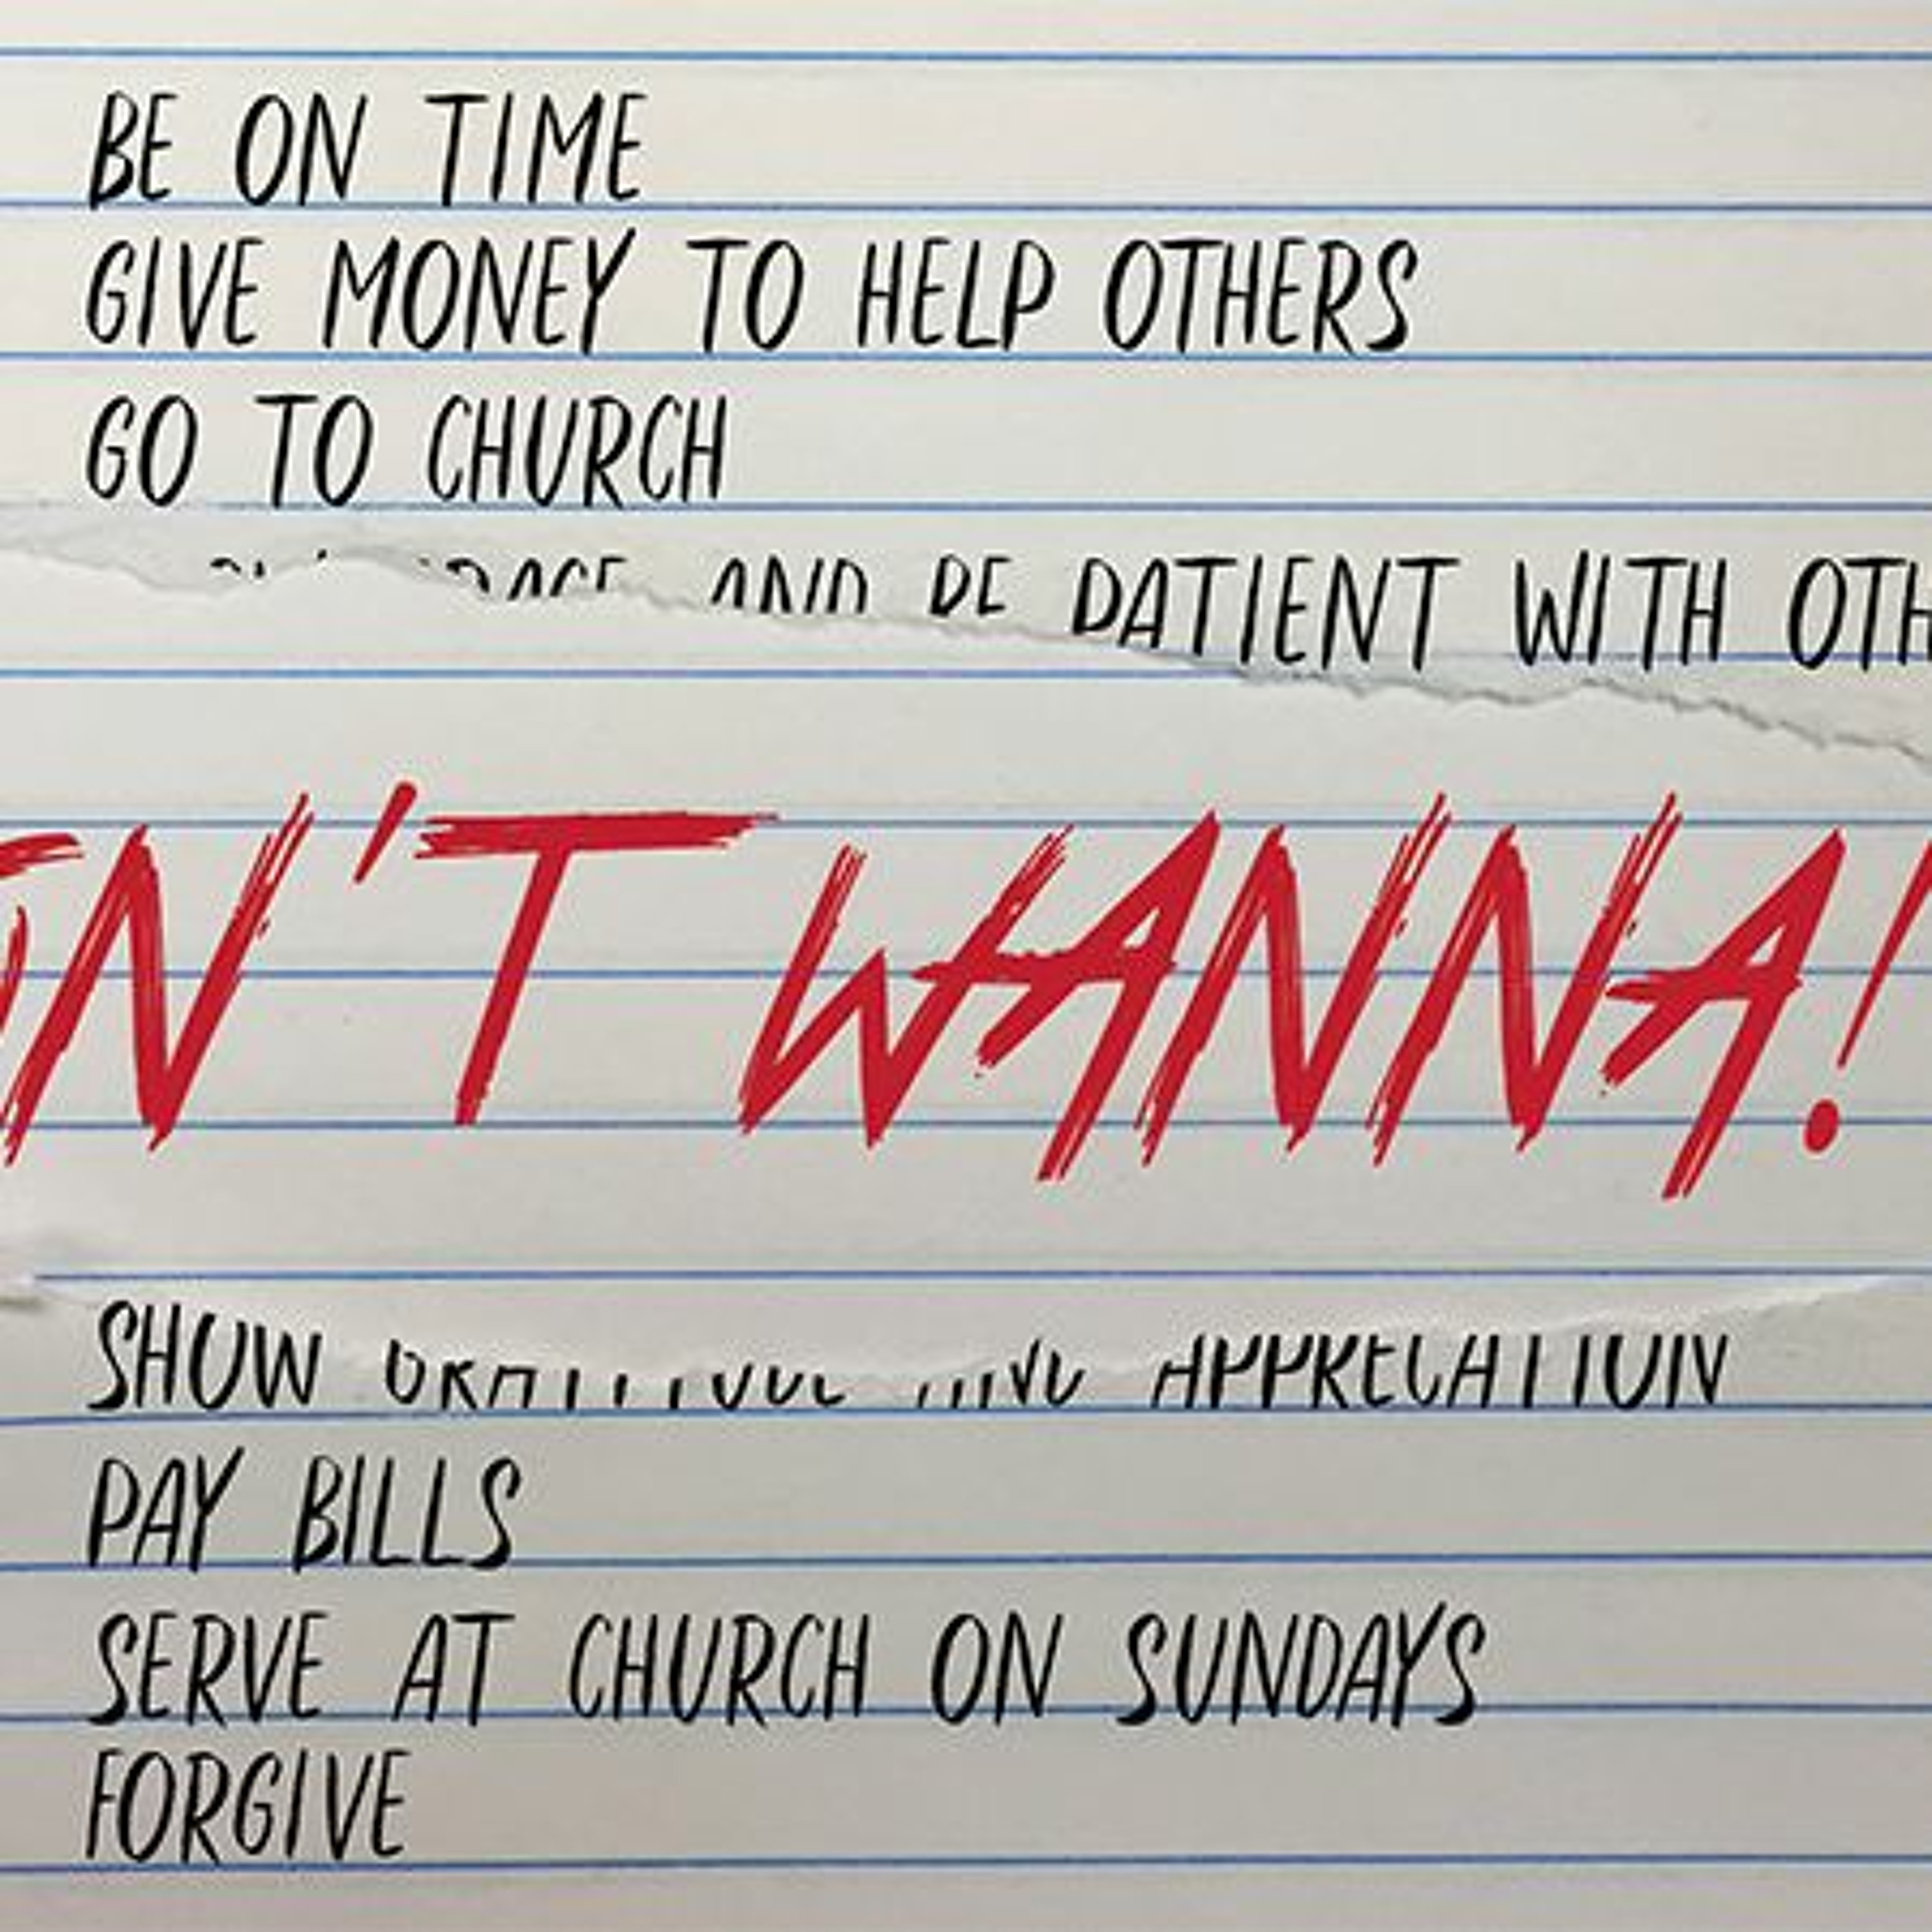 BE ON TIME
GIVE MONEY TO HELP OTHERS
GO TO CHURCH
AND BE PATIENT WITH OTH
ON'T WANNA!
SHOW GRATITUDE AND APPRECATION
PAY BILLS
SERVE AT CHURCH ON SUNDAYS
FORGIVE